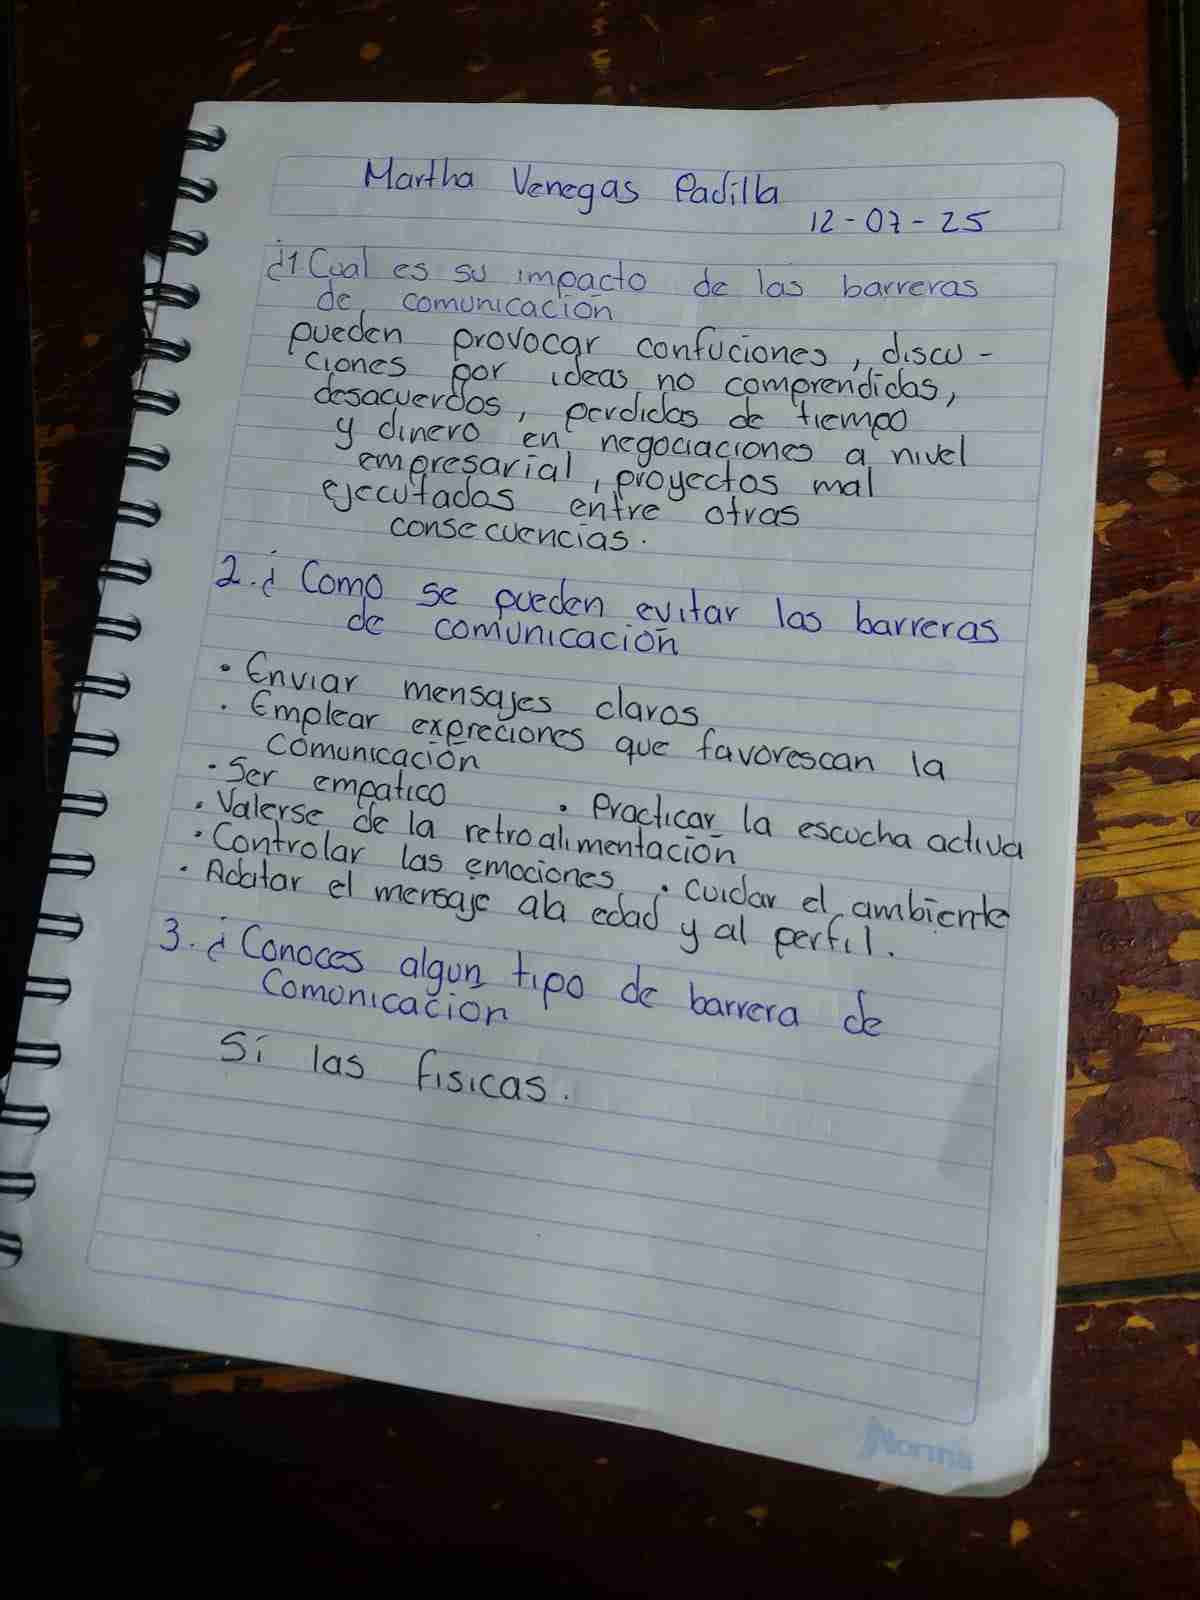 Martha Venegas Padilla
12-07-25
¿1. Cual es su impacto de las barreras
de comunicación
pueden provocar confuciones, discu-
ciones por ideas no comprendidas,
desacuerdos, perdidas de tiempo
y dinero en negociaciones a nivel
empresarial, proyectos mal
ejecutados entre otras
consecuencias.
2. ¿Como se pueden evitar las barreras
de comunicación
• Enviar mensajes claros
• Emplear expreciones que favorescan la
comunicación
• Ser empatico • Practicar la escucha activa
• Valerse de la retroalimentación
• Controlar las emociones • cuidar el ambiente
• Adatar el mensaje ala edad y al perfil.
3. ¿Conoces algun tipo de barrera de
Comonicacion
Si las fisicas.
Norma